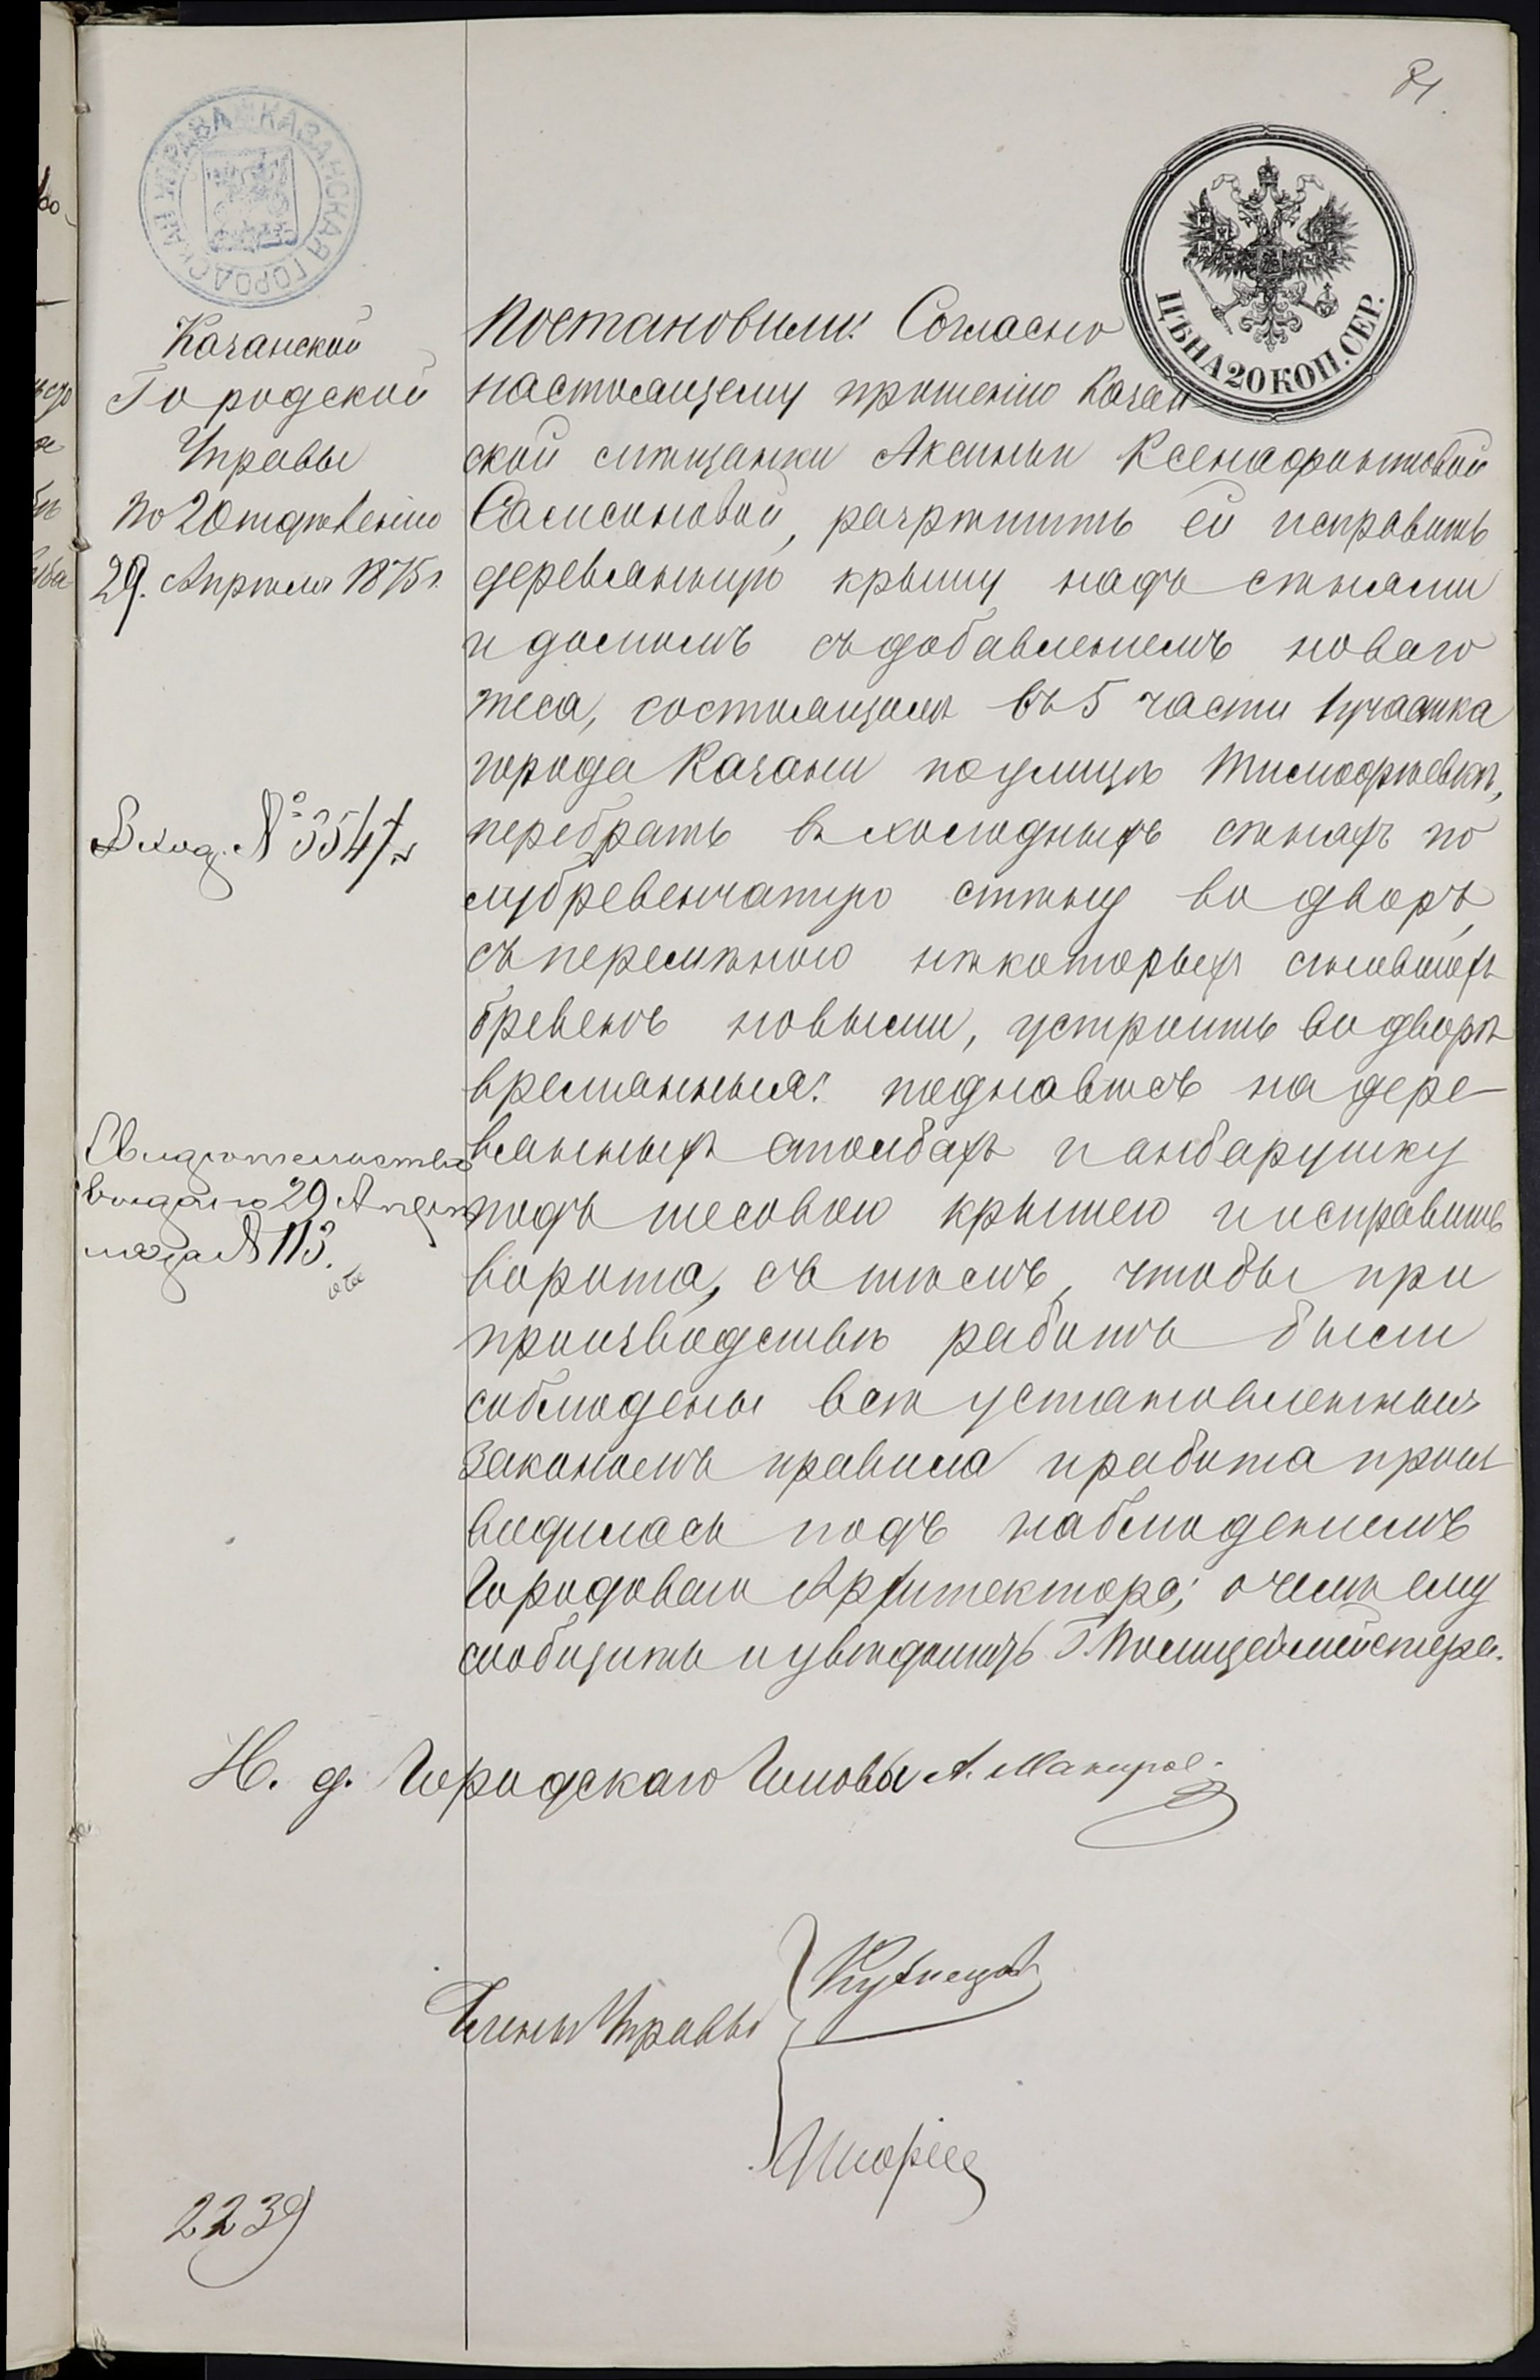 КАЗАНСКАЯ ГОРОДСКАЯ УПРАВА
ЦѢНА 20 КОП. СЕР.
Казанской
Городской
Управы
по 2 отдѣленію
29. Апрѣля 1875 г.
Постановили: Согласно
настоящему прошенію Казан-
ской мѣщанки Аксиньи Ксенофонтовой
Самсоновой, разрѣшить ей исправить
деревянную крышу надъ сѣнями
и домомъ съ добавленіемъ новаго
теса, состоящимъ въ 5 части 1 участка
города Казани по улицѣ Тимофѣевкѣ,
перебрать въ холодныхъ сѣняхъ по
лубревенчатую стѣну во дворѣ,
съ перемѣною нѣкоторыхъ сгнившихъ
бревенъ новыми, устроить во дворѣ
временныя: поднавѣсъ на дере-
вянныхъ столбахъ и анбарушку
подъ тесовою крышею и исправить
ворота, съ тѣмъ, чтобы при
производствѣ работъ были
соблюдены всѣ установленныя
закономъ правила и работа произ
водилась подъ наблюденіемъ
Городоваго Архитектора; о чемъ ему
сообщить и увѣдомить Г. Полицеймейстера.
Вход. № 3547
Свидѣтельство
выдано 29 Апрѣ
ля за № 113.
И. д. Городскаго Головы А.
Члены Управы
Кузнецов
2239